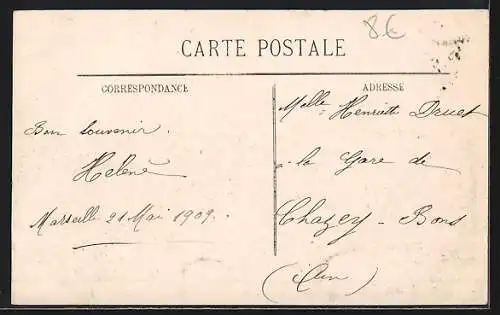 8€
CARTE POSTALE
CORRESPONDANCE
ADRESSE
Bon Souvenir.
Helène
Marseille 21 Mai 1909.
Melle Henriett Druet
à la Gare de
Chazey-Bons
(Ain)